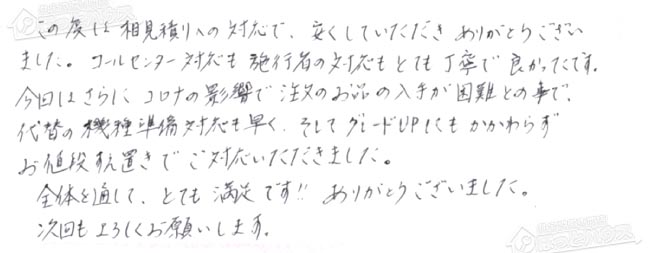 この度は相見積りへの対応で、安くしていただき ありがとうござい
ました。コールセンター対応も 施行者の対応もとても丁寧で 良かったです。
今回はさらに コロナの影響で 注文のお品の入手が困難との事で、
代替の機種準備対応も早く、そしてグレードUPにもかかわらず
お値段すえ置きで ご対応いただきました。
全体を通して、とても満足です!! ありがとうございました。
次回もよろしくお願いします。